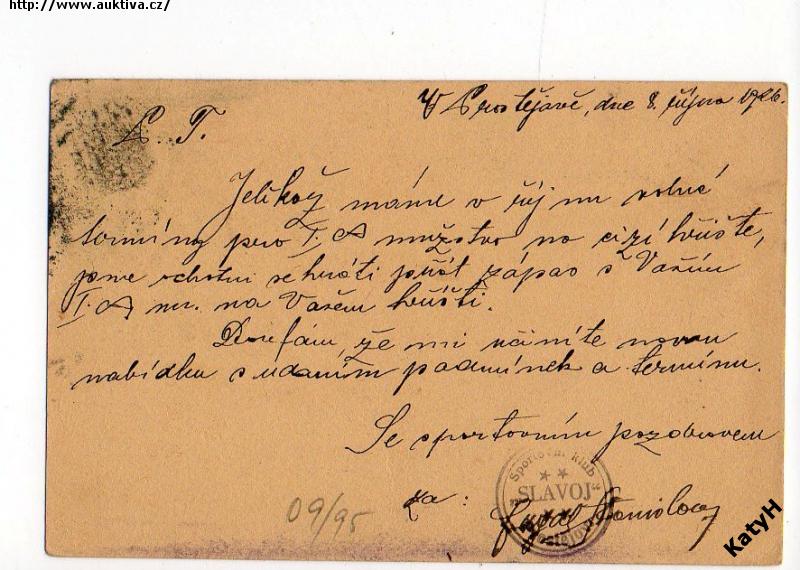 http://www.auktiva.cz/
V Prostějově, dne 8. října 1926.
P. T.
Jelikož máme v říjnu volné
termíny pro I. A mužstvo na cizí hřiště,
jsme ochotni sehráti přát. zápas s Vaším
I. A m. na Vašem hřišti.
Doufám, že mi učiníte novou
nabídku s udáním podmínek a termínu.
Se sportovním pozdravem
za:
Sportovní klub
"SLAVOJ"
Prostějov
09/95
KatyH